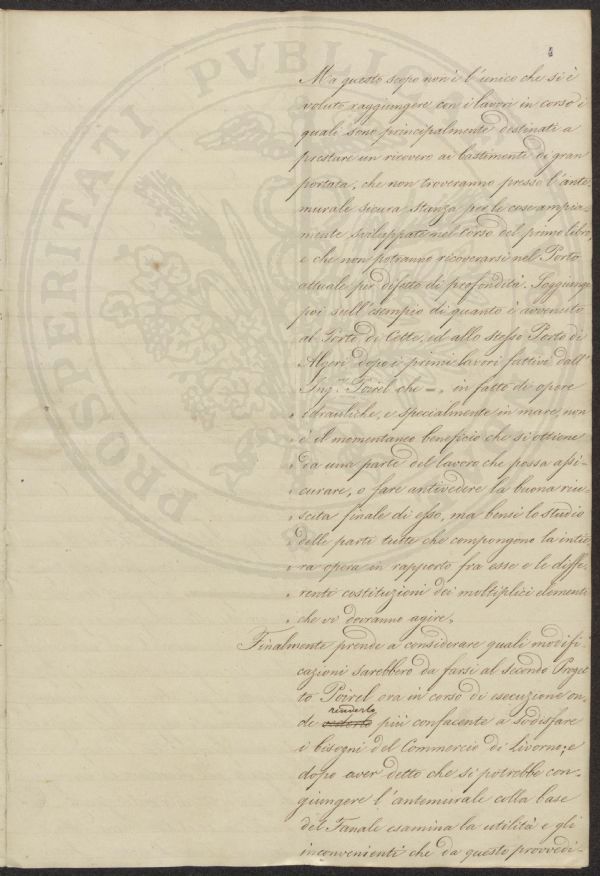 PROSPERITATI PVBLICAE
Ma questo scopo non è l'unico che si è
voluto raggiungere con i lavori in corso i
quali sono principalmente destinati a
prestare un ricovero ai bastimenti di gran
portata, che non troveranno presso l'ante-
murale sicura stanza per le cose ampia-
mente sviluppate nel corso del primo libro,
e che non potranno ricoverarsi nel Porto
attuale per difetto di profondità. Soggiunge
poi sull'esempio di quanto è avvenuto
al Porto di Cette, ed allo stesso Porto di
Algeri dopo i primi lavori fattivi dall'
Ing.r Poirel che =„ in fatto di opere
„ idrauliche, e specialmente in mare, non
„ è il momentaneo beneficio che si ottiene
„ da una parte del lavoro che possa assi-
„ curare, o fare antivedere la buona riu-
„ scita finale di esso, ma bensì lo studio
„ delle parti tutte che compongono la intie-
„ ra opera in rapporto fra esse e le diffe-
„ renti costituzioni dei moltiplici elementi
„ che vi dovranno agire„
Finalmente prende a considerare quali modifi-
cazioni sarebbero da farsi al secondo Proget-
to Poirel ora in corso di esecuzione on-
renderlo
de più confacente a sodisfare
i bisogni del Commercio di Livorno; e
dopo aver detto che si potrebbe con-
giungere l'antemurale colla base
del Fanale esamina la utilità e gli
inconvenienti che da questo provvedi-